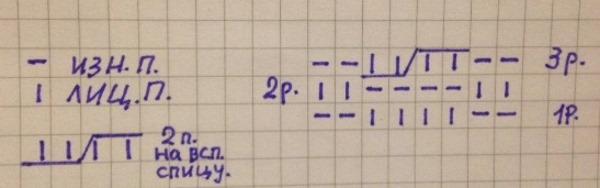 — ИЗН.П.
| ЛИЦ.П.
2п. на всп. спицу.
— — | | / | | — — 3р.
2р. | | — — — — | |
— — | | | | — — 1р.